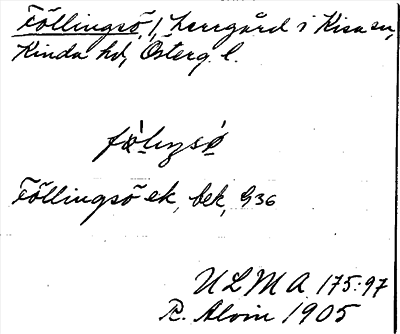 Föllingsö, 1, herrgård i Kisa sn,
Kinda hd, Österg. l.
Föllingsö ek, bek, G36
ULMA 175:97
R. Alvin 1905